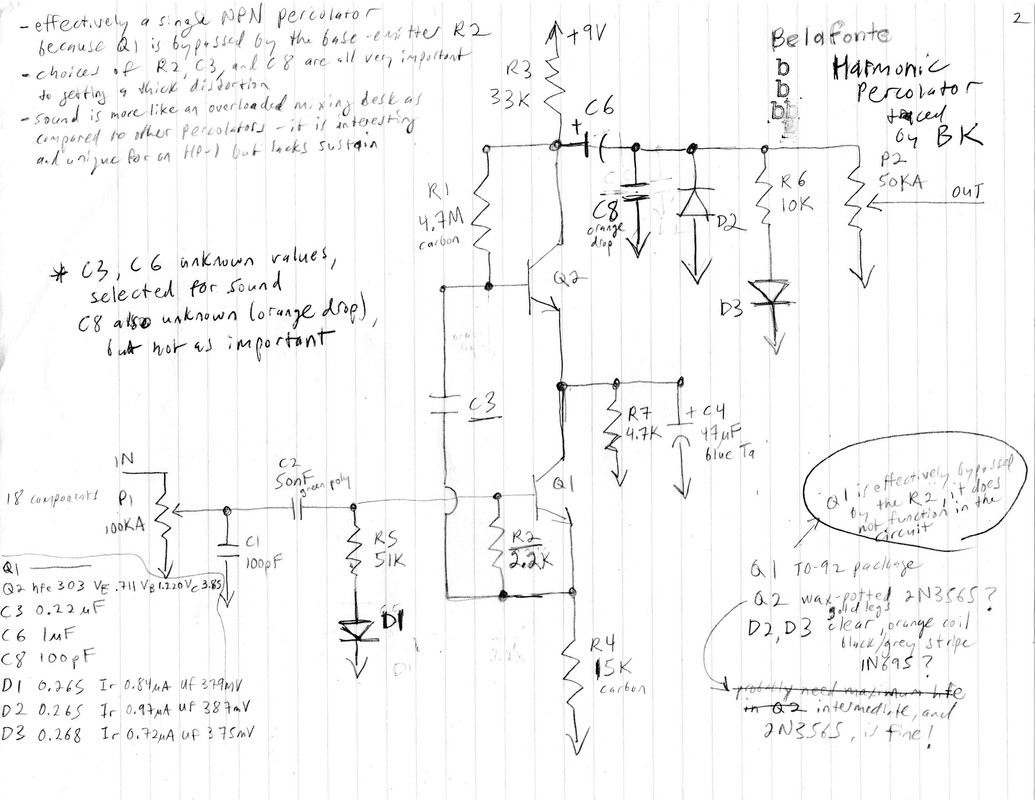 2
- effectively a single NPN percolator
because Q1 is bypassed by the base-emitter R2
- choices of R2, C3, and C8 are all very important
to getting a thick distortion
- sound is more like an overloaded mixing desk as
compared to other percolators - it is interesting
and unique for an HP-1 but lacks sustain
+9V
Belafonte
b
b
bb
Harmonic
Percolator
traced
by BK
R3
33K
+ C6
R1
4.7M
carbon
C8
orange
drop
D2
R6
10K
P2
50KA
OUT
D3
Q2
* C3, C6 unknown values,
selected for sound
C8 also unknown (orange drop),
but not as important
C3
R7
4.7K
+ C4
47µF
blue Ta
IN
18 components
P1
100KA
C2
50nF
green poly
C1
100pF
R5
51K
D1
Q1
R2
2.2K
R4
15K
carbon
Q1 is effectively bypassed
by the R2, it does
not function in the
circuit
Q1 TO-92 package
Q2 wax-potted 2N3565?
gold legs
D2, D3 clear, orange coil
black/grey stripe
1N695?
probably need maximum hfe
in Q2 intermediate, and
2N3565, is fine!
Q1
Q2 hfe 303 VE .711 VB 1.220 VC 3.85
C3 0.22µF
C6 1µF
C8 100pF
D1 0.265 Ir 0.84µA uf 379mV
D2 0.265 Ir 0.97µA uf 387mV
D3 0.268 Ir 0.72µA uf 375mV